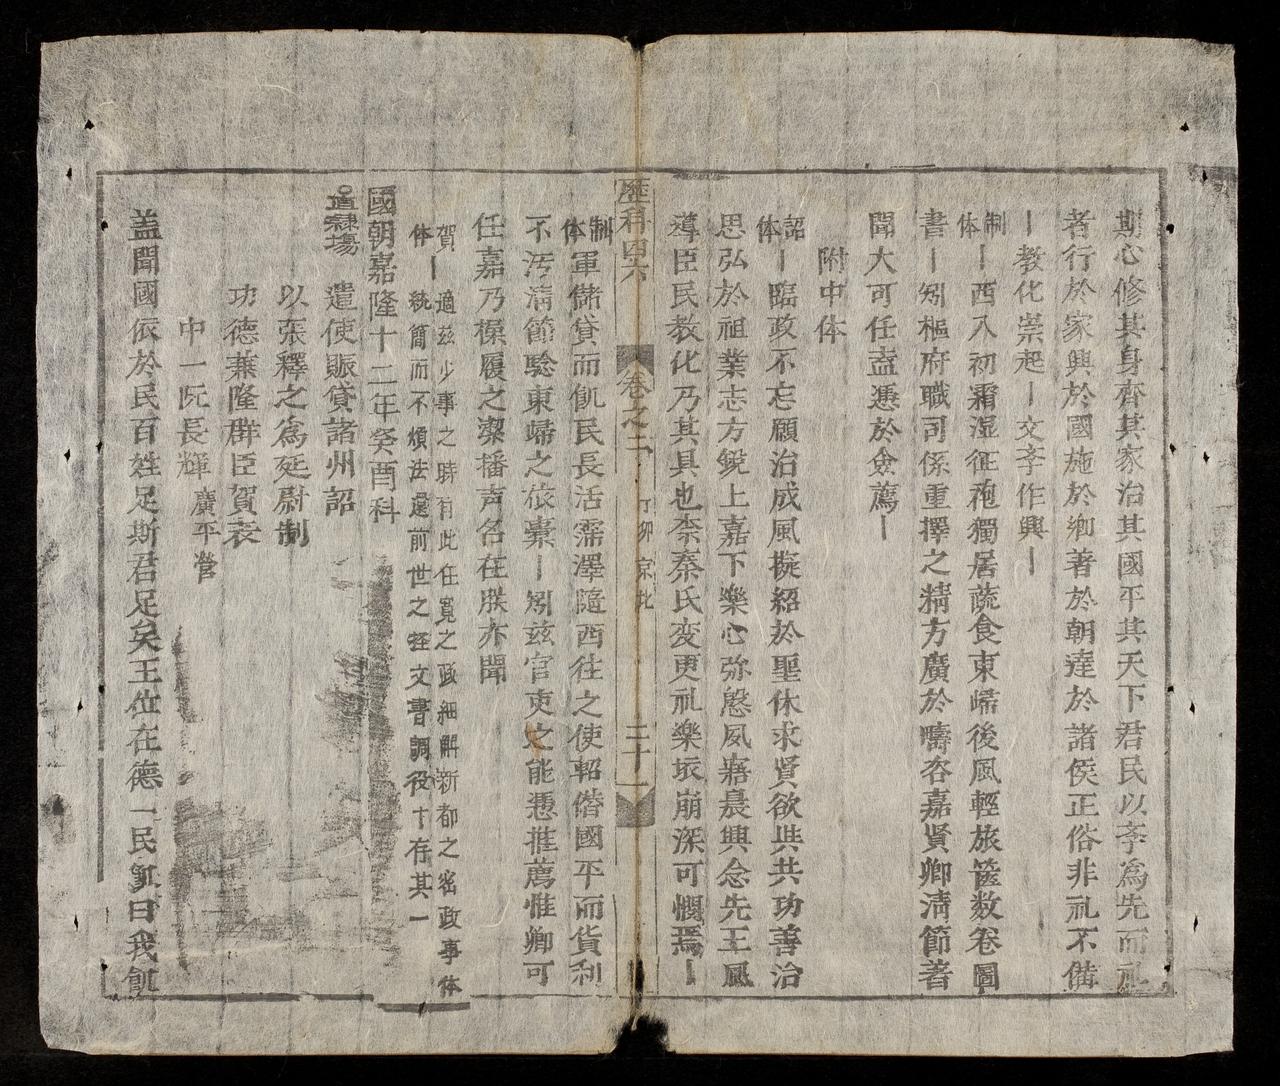 期心修其身齊其家治其國平其天下君民以孝為先而礼
者行於家興於國施於鄉著於朝達於諸侯正俗非礼不備
｜教化崇起｜文孝作興｜
制体｜西入初霜湿征袍獨居蔬食東帰後風輕旅篋数卷圖
書｜矧樞府職司係重擇之精方廣於疇咨嘉賢卿清節著
聞大可任盍憑於僉薦｜
附中体
詔体｜臨政不忘願治成風擬紹於聖休求賢欲與共功善治
思弘於祖業志方銳上嘉下樂心弥慇夙寤晨興念先王風
導臣民教化乃其具也柰秦氏変更礼樂垓崩深可慨焉｜
歷科四六
卷之二
丁卯京北
二十一
制体軍儲貸而飢民長活霈澤隨西往之使軺偺國平而貨利
不汚清節騐東帰之旅橐｜矧兹官吏之能憑推薦惟卿可
任嘉乃模履之潔播声名在朕亦聞
賀体｜適兹少事之時有此任寬之政細解新都之密政事体
統簡而不煩法還前世之經文書調役十存其一
國朝嘉隆十二年癸酉科
直隸場 遣使賑貸諸州詔
以張釋之為廷尉制
功德兼隆群臣賀表
中一阮長輝 廣平營
盖聞國依於民百姓足斯君足矣王位在德一民飢曰我飢